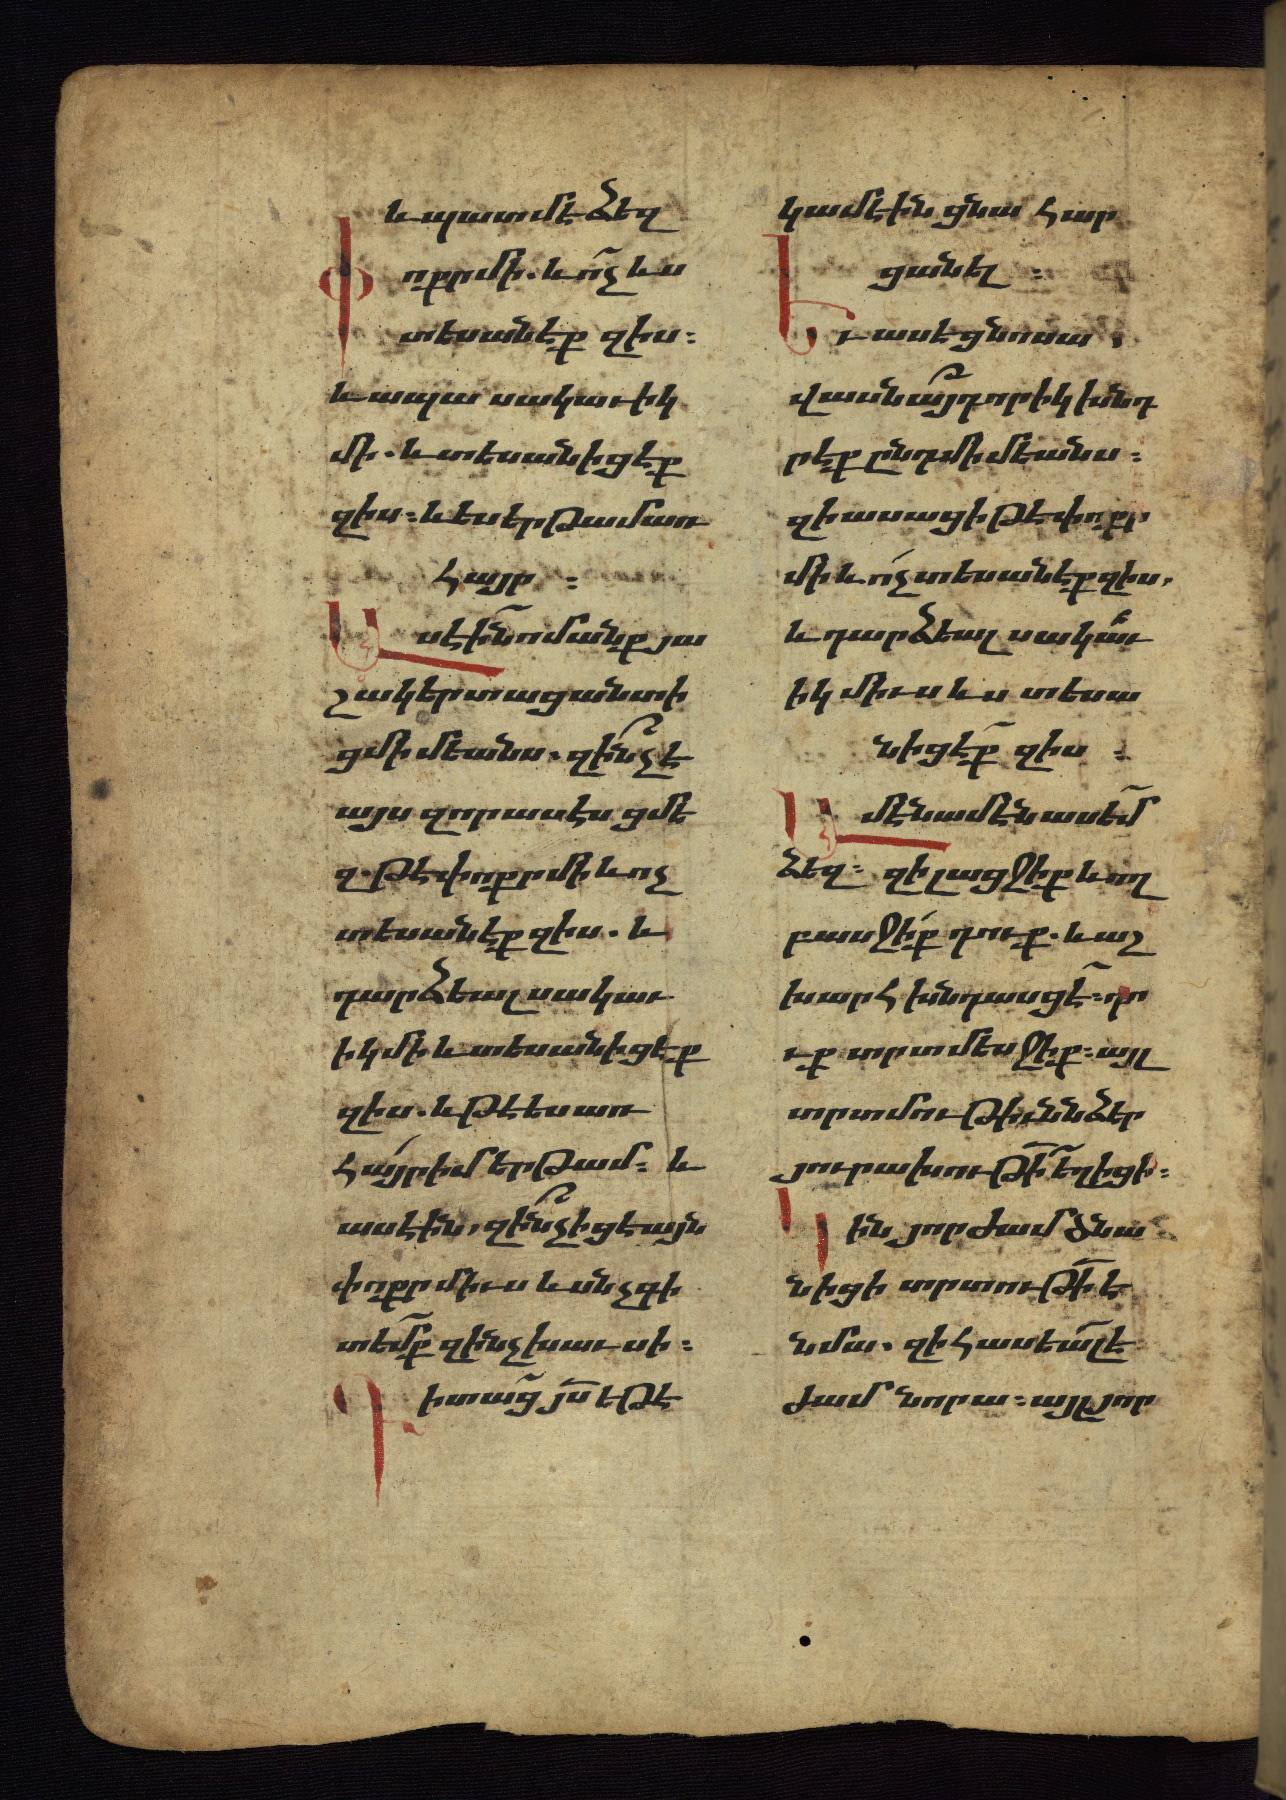 և պատմէ ձեզ
Փոքր մի. և ո՞չ ևս
տեսանէք զիս։
և ապա սակաւիկ
մի. և տեսանիցէք
զիս։ և ես երթամ առ
հայր ։
Ասէին ոմանք յա
շակերտացանտի
ցմիմեանս. զի՞նչ է
այս զոր ասէս ցմե
զ. թէ փոքր մի և ոչ
տեսանէք զիս. և
դարձեալ սակաւ
իկ մի և տեսանիցէք
զիս. և թէ ես առ
հայր իմ երթամ։ և
ասէին, զի՞նչ իցէ այն
փոքր միւս և սնչ գի
տեմք զինչ խաւսի։
Գիտաց յս եթէ
կամէին ցնա հար
ցանել ։
Եւ ասէ ցնոսա,
վասն այդորիկ խնդ
րէք ընդ միմեանս։
զի ասացի թէ փոքր
մի և ո՛չ տեսանէք զիս,
և դարձեալ սակաւ
իկ միւս ևս տեսա
նիցէք զիս ։
Ամէն ամէն ասեմ
ձեզ։ զի լացջիք և ող
բասջիք դուք. և աշ
խարհ խնդասցէ։ դո
ւք տրտմեսջիք։ այլ
տրտմութիւնն ձեր
յուրախութի եղիցի։
Կին յորժամ ծնա
նիցի տրտութի է
նմա. զի հասեալ է
ժամ նորա։ այլ յոր